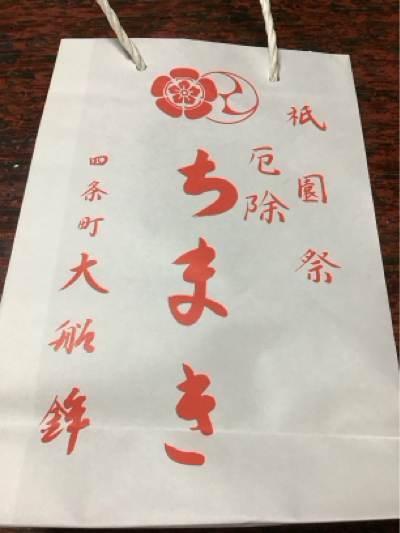 祇園祭
厄除
ちまき
四条町大船鉾